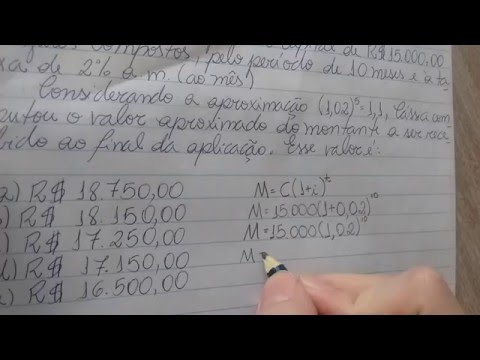 compostos, pelo período de 10 meses e à ta
xa de 2% a m. (ao mês)
Considerando a aproximação (1,02)⁵=1,1, Cássa com
putou o valor aproximado do montante a ser rece
bido ao final da aplicação. Esse valor é:
a) R$ 18.750,00
b) R$ 18.150,00
c) R$ 17.250,00
d) R$ 17.150,00
e) R$ 16.500,00
M=C(1+i)ᵗ
M=15.000(1+0,02)¹⁰
M=15.000(1,02)¹⁰
M